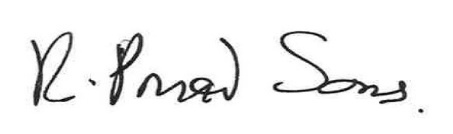 R. Prasad Sons.